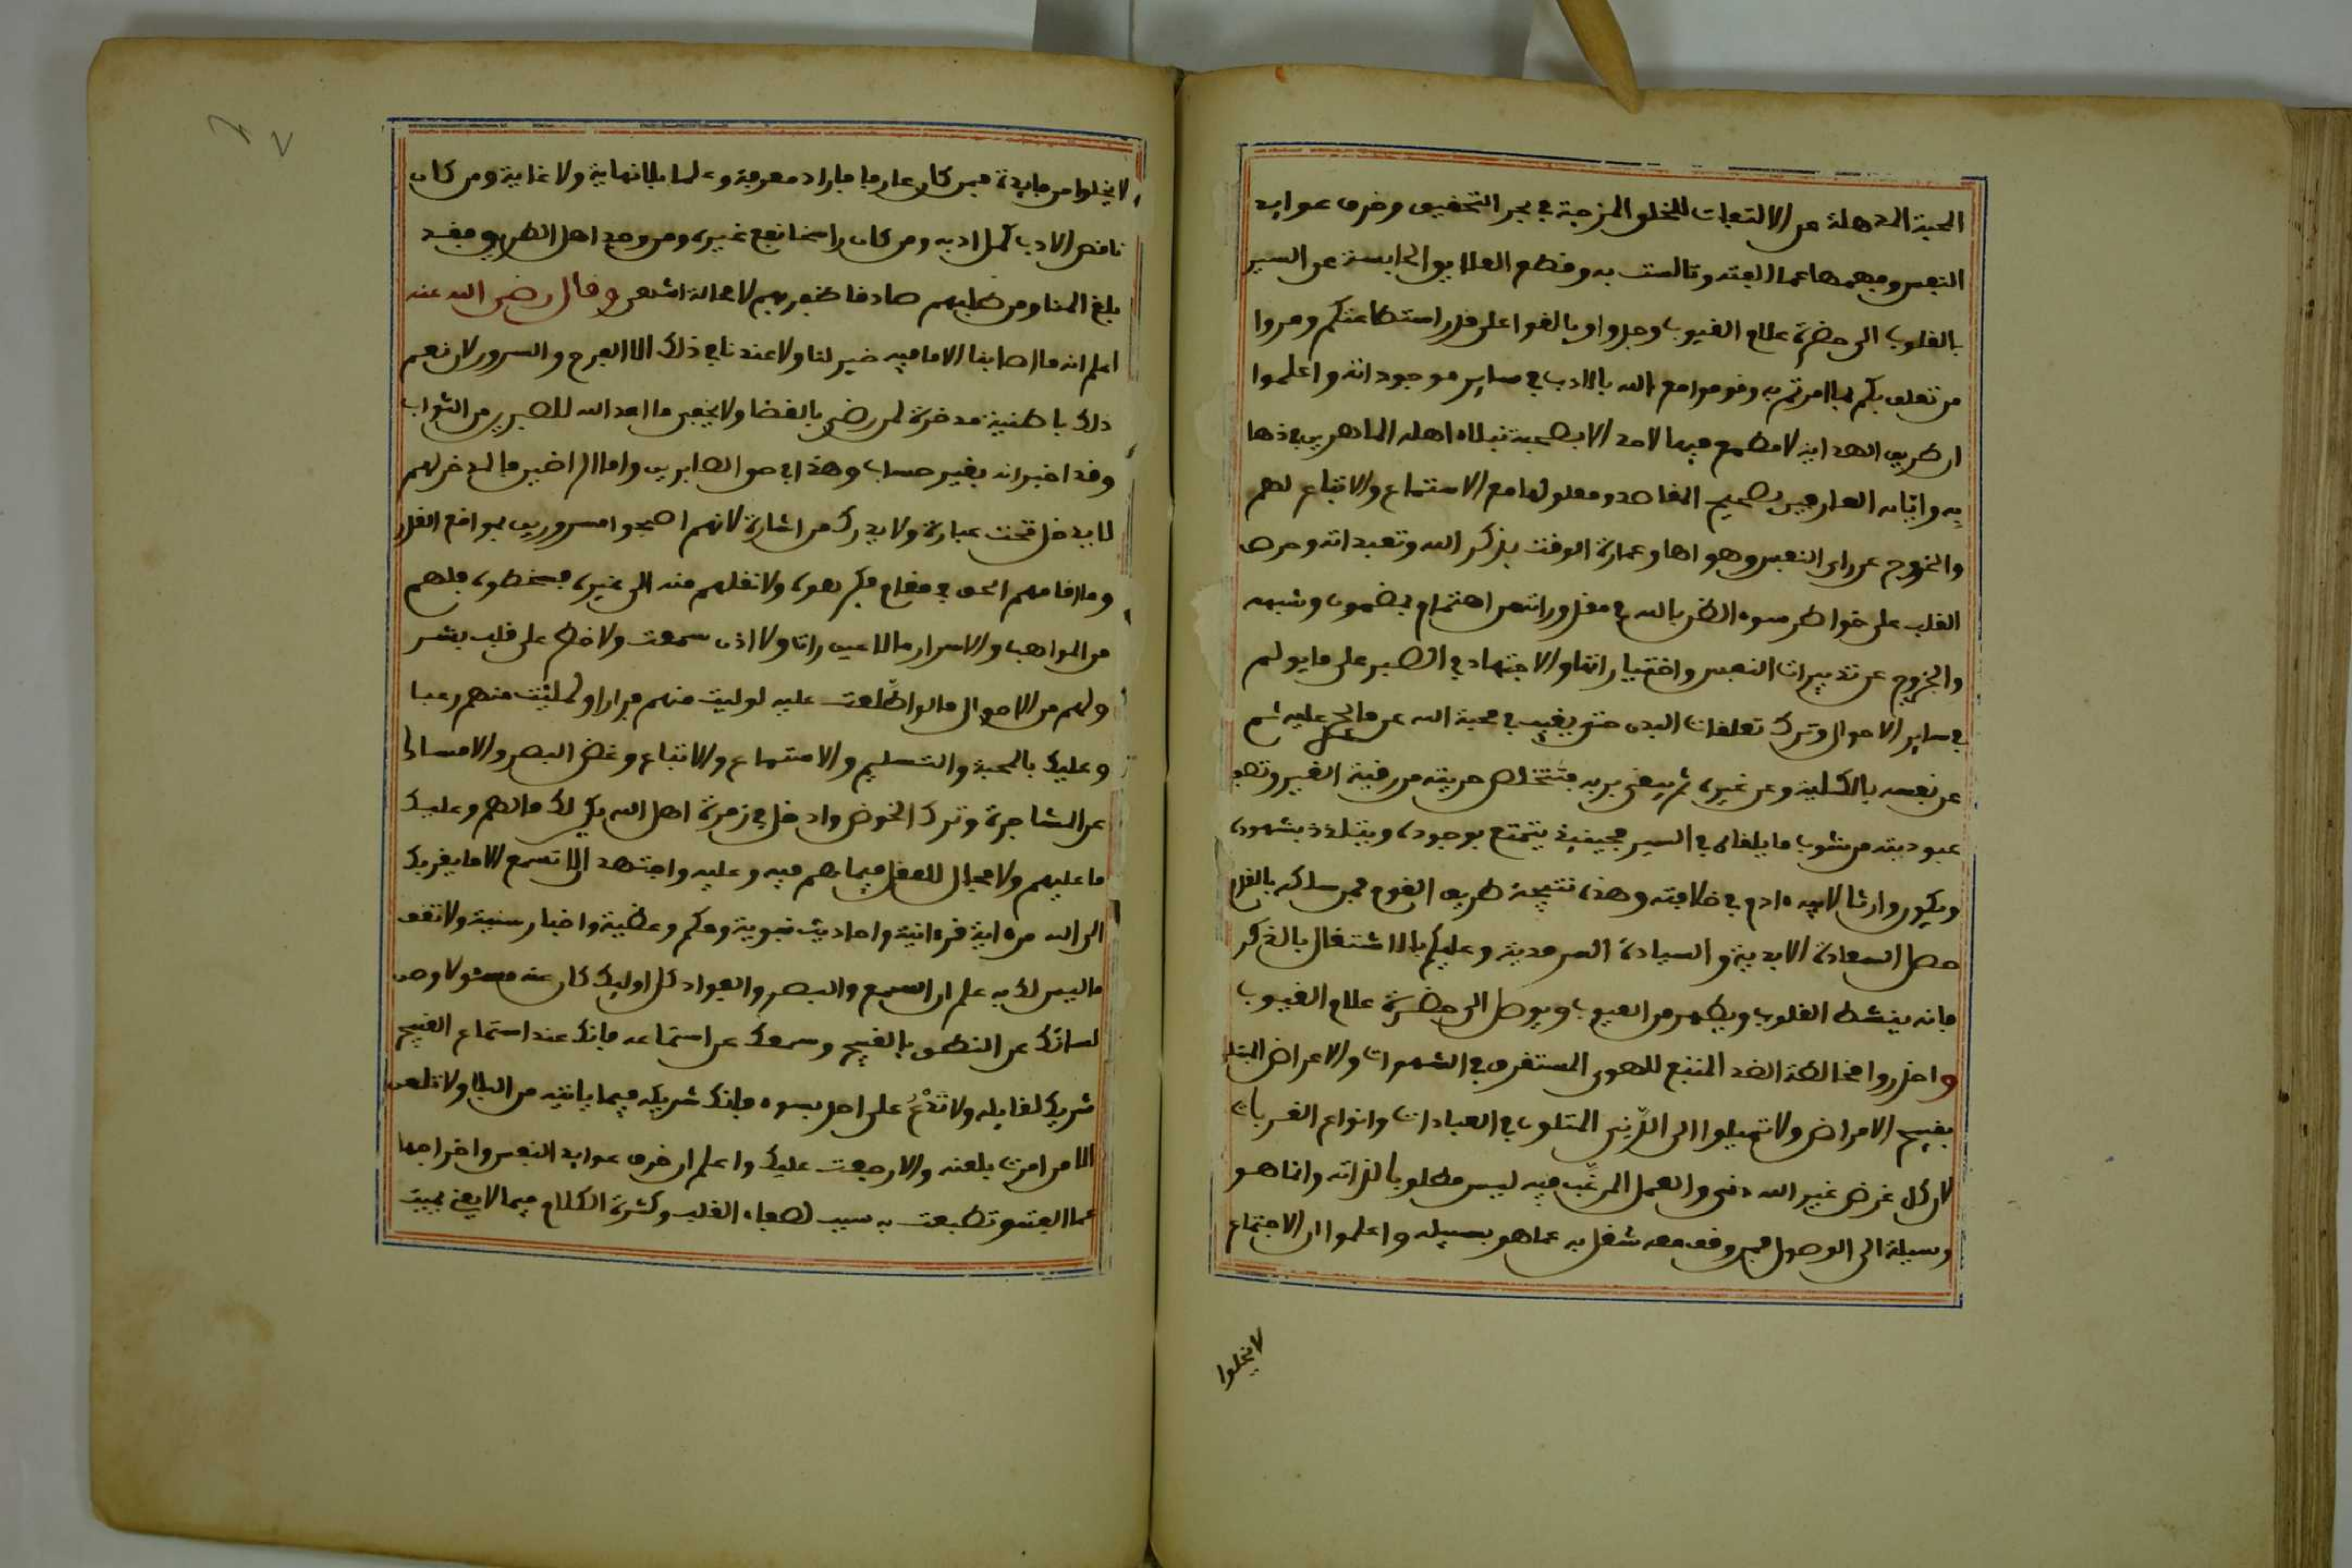 المحبة المذهلة عن الالتفات للخلق المزجية في بحر التحقيق وخرق عوايد
النفس وفهمها عما الفته وتالست به وقطع العلايق الحابسة عن السير
بالقلوب الى حضرة علام الغيوب وجدوا وبالغوا على قدر استطاعتكم ومروا
من تعلق بكم بما امرتم به وقوموا مع الله بالادب في ساير موجوداته واعلموا
ان طريق الهداية لا مطمع فيها لاحد الا بصحبة نبلاء اهلها الماهرين في ذهابـ
ـه وايابه العارفين بصحيح المقاصد ومعلولها مع الاستماع والاتباع لهم
والخروج عن راى النفس وهواها وعمارة الوقت بذكر الله وتعبداته وحرص
القلب على خواطر سوء الظن بالله في مقدور انتهى اهتمام بمضمون وشبهه
والخروج عن تدبيرات النفس واختياراتها والاجتهاد في الصبر على ما يولم
في ساير الاحوال وترك تعلقات البدن حتى يغيب في محبة الله عن ما يجرى عليه ثم
عن نفسه بالكلية وعن غيره ثم يبقى بربه فتتخلص حريته من رقية الغير وتصفو
عبوديته من شوب ما يلقاه في السير فحينئذ يتمتع بوجوده ويتلذذ بشهوده
ويكون وارثا لابيه ءادم في خلافته وهذه نتيجة طريق القوم فمن سلكه بالقلب
حصل السعادة الابدية والسيادة السرمدية وعليكم بالاشتغال بالذكر
فانه ينشط القلوب ويطهر من العيوب ويوصل الى حضرة علام الغيوب
واحذروا مخالطة الضد المتبع للهوى المستغرق في الشهوات والاعراض المبتلى
بقبيح الامراض ولا تميلوا الى الدنى المتلون في العبادات وانواع القربات
لان كل غرض غير الله دنى والعمل المرغب فيه ليس مطلوبا لذاته وانما هو
وسيلة الى الوصول فمن وقف معه شغل به عما هو بسبيله واعلموا ان الاجتماع
لا يخلوا
لا يخلوا من فايدة فمن كان عارفا فازداد معرفة وعلما بلا نهاية ولا غاية ومن كان
ناقص الادب كمل ادبه ومن كان راسخا نفع غيره ومن وجد اهل الطريق فقد
بلغ المنا ومن طلبهم صادقا ظفر بهم لا محالة انتهى وقال رضي الله عنه
اعلم انه ما اصابنا الا ما فيه خير لنا ولا عندنا في ذلك الا الفرح والسرور لان نعم
ذلك باطنية مدخرة لمن رضي بالقضا ولا يخفى ما اعد الله للصبر من الثواب
وقد اخبر انه بغير حساب وهذا في حق الصابرين واما الراضين فما ادخر لهم
لا يدخل تحت عبارة ولا يدرك من اشارة لانهم اصبحوا مسرورين بمواقع القدر
وما اقامهم الحق في مقام فكرهوه ولا نقلهم منه الى غيره فسخطوه فلهم
من المواهب والاسرار ما لا عين رات ولا اذن سمعت ولا خطر على قلب بشر
ولهم من الاحوال ما لو اطلعت عليه لوليت منهم فرارا ولملئت منهم رعبا
وعليك بالمحبة والتسليم والاستماع والاتباع وغض البصر والامساك
عن المشاجرة وترك الخوض وادخل في زمرة اهل الله يكن لك ما لهم وعليك
ما عليهم ولا مجال للعقل فيما هم فيه وعليه واجتهد الا تسمع الا ما يقربك
الى الله من ءاية قرءانية واحاديث نبوية وحكم وعظية واخبار سنية ولا تقف
ما ليس لك به علم ان السمع والبصر والفواد كل اوليك كان عنه مسئولا وصن
لسانك عن النطق بالقبيح وسمعك عن استماعه فانك عند استماع القبيح
شريك لقايله ولا تدع على احد بسوء فانك شريكه فيما ياتيه من البلا ولا تلعن
الا من امرت بلعنه والا رجعت عليك واعلم ان خرق عوايد النفس واخراجها
عما الفته وتطبعت به سبب لصفاء القلب وكثرة الكلام فيما لا يعني تميت